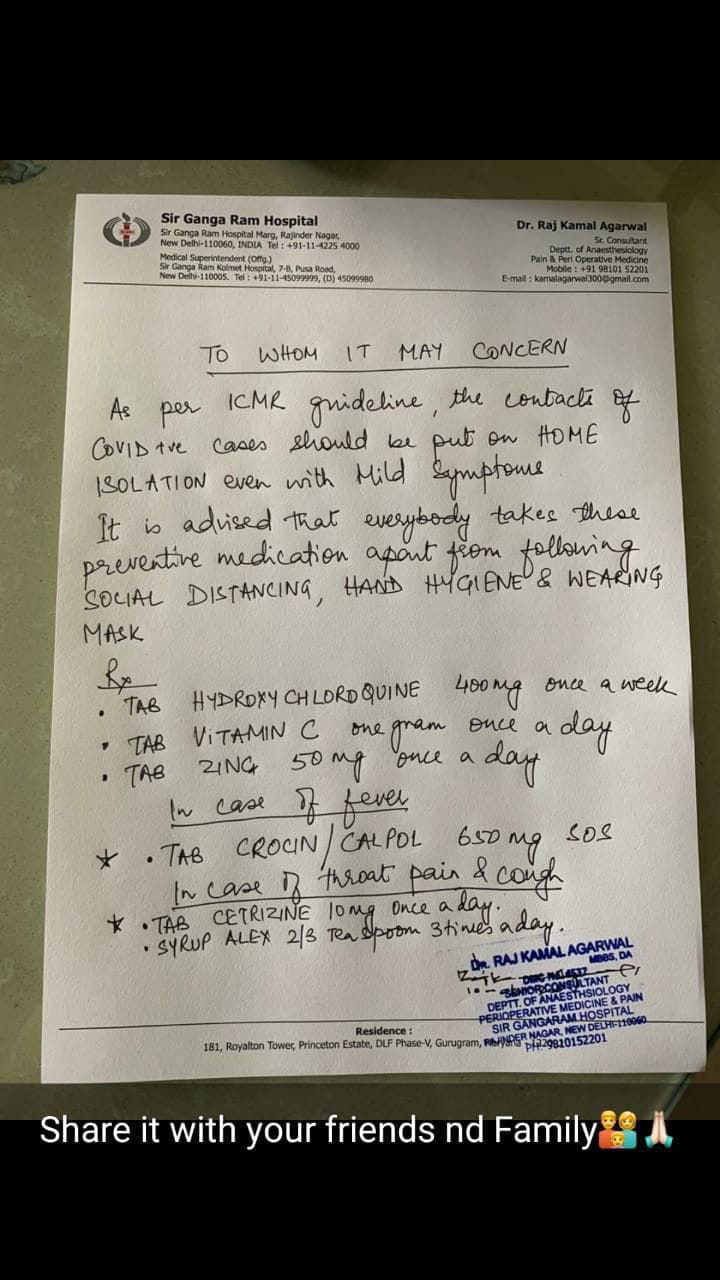 Sir Ganga Ram Hospital
Sir Ganga Ram Hospital Marg, Rajinder Nagar,
New Delhi-110060, INDIA Tel : +91-11-4225 4000
Medical Superintendent (Offg.)
Sir Ganga Ram Kolmet Hospital, 7-B, Pusa Road,
New Delhi-110005. Tel : +91-11-45099999, (D) 45099980
Dr. Raj Kamal Agarwal
Sr. Consultant
Deptt. of Anaesthesiology
Pain & Peri Operative Medicine
Mobile : +91 98101 52201
E-mail : kamalagarwal300@gmail.com
TO WHOM IT MAY CONCERN
As per ICMR guideline, the contacts of
COVID +ve cases should be put on HOME
ISOLATION even with Mild Symptoms
It is advised that everybody takes these
preventive medication apart from following
SOCIAL DISTANCING, HAND HYGIENE & WEARING
MASK
Rx
• TAB HYDROXYCHLOROQUINE 400mg once a week
• TAB VITAMIN C one gram once a day
• TAB ZINC 50 mg once a day
In case of fever
* • TAB CROCIN / CALPOL 650 mg SOS
In case of throat pain & cough
* • TAB CETRIZINE 10mg once a day.
• SYRUP ALEX 2/3 Tea spoom 3 times a day.
Dr. RAJ KAMAL AGARWAL
MBBS, DA
SENIOR CONSULTANT
DEPTT. OF ANAESTHSIOLOGY
PERIOPERATIVE MEDICINE & PAIN
SIR GANGARAM HOSPITAL
RAJINDER NAGAR, NEW DELHI-110060
PH: 9810152201
Residence :
181, Royalton Tower, Princeton Estate, DLF Phase-V, Gurugram,
Share it with your friends nd Family👨‍👩‍👦🙏🏻